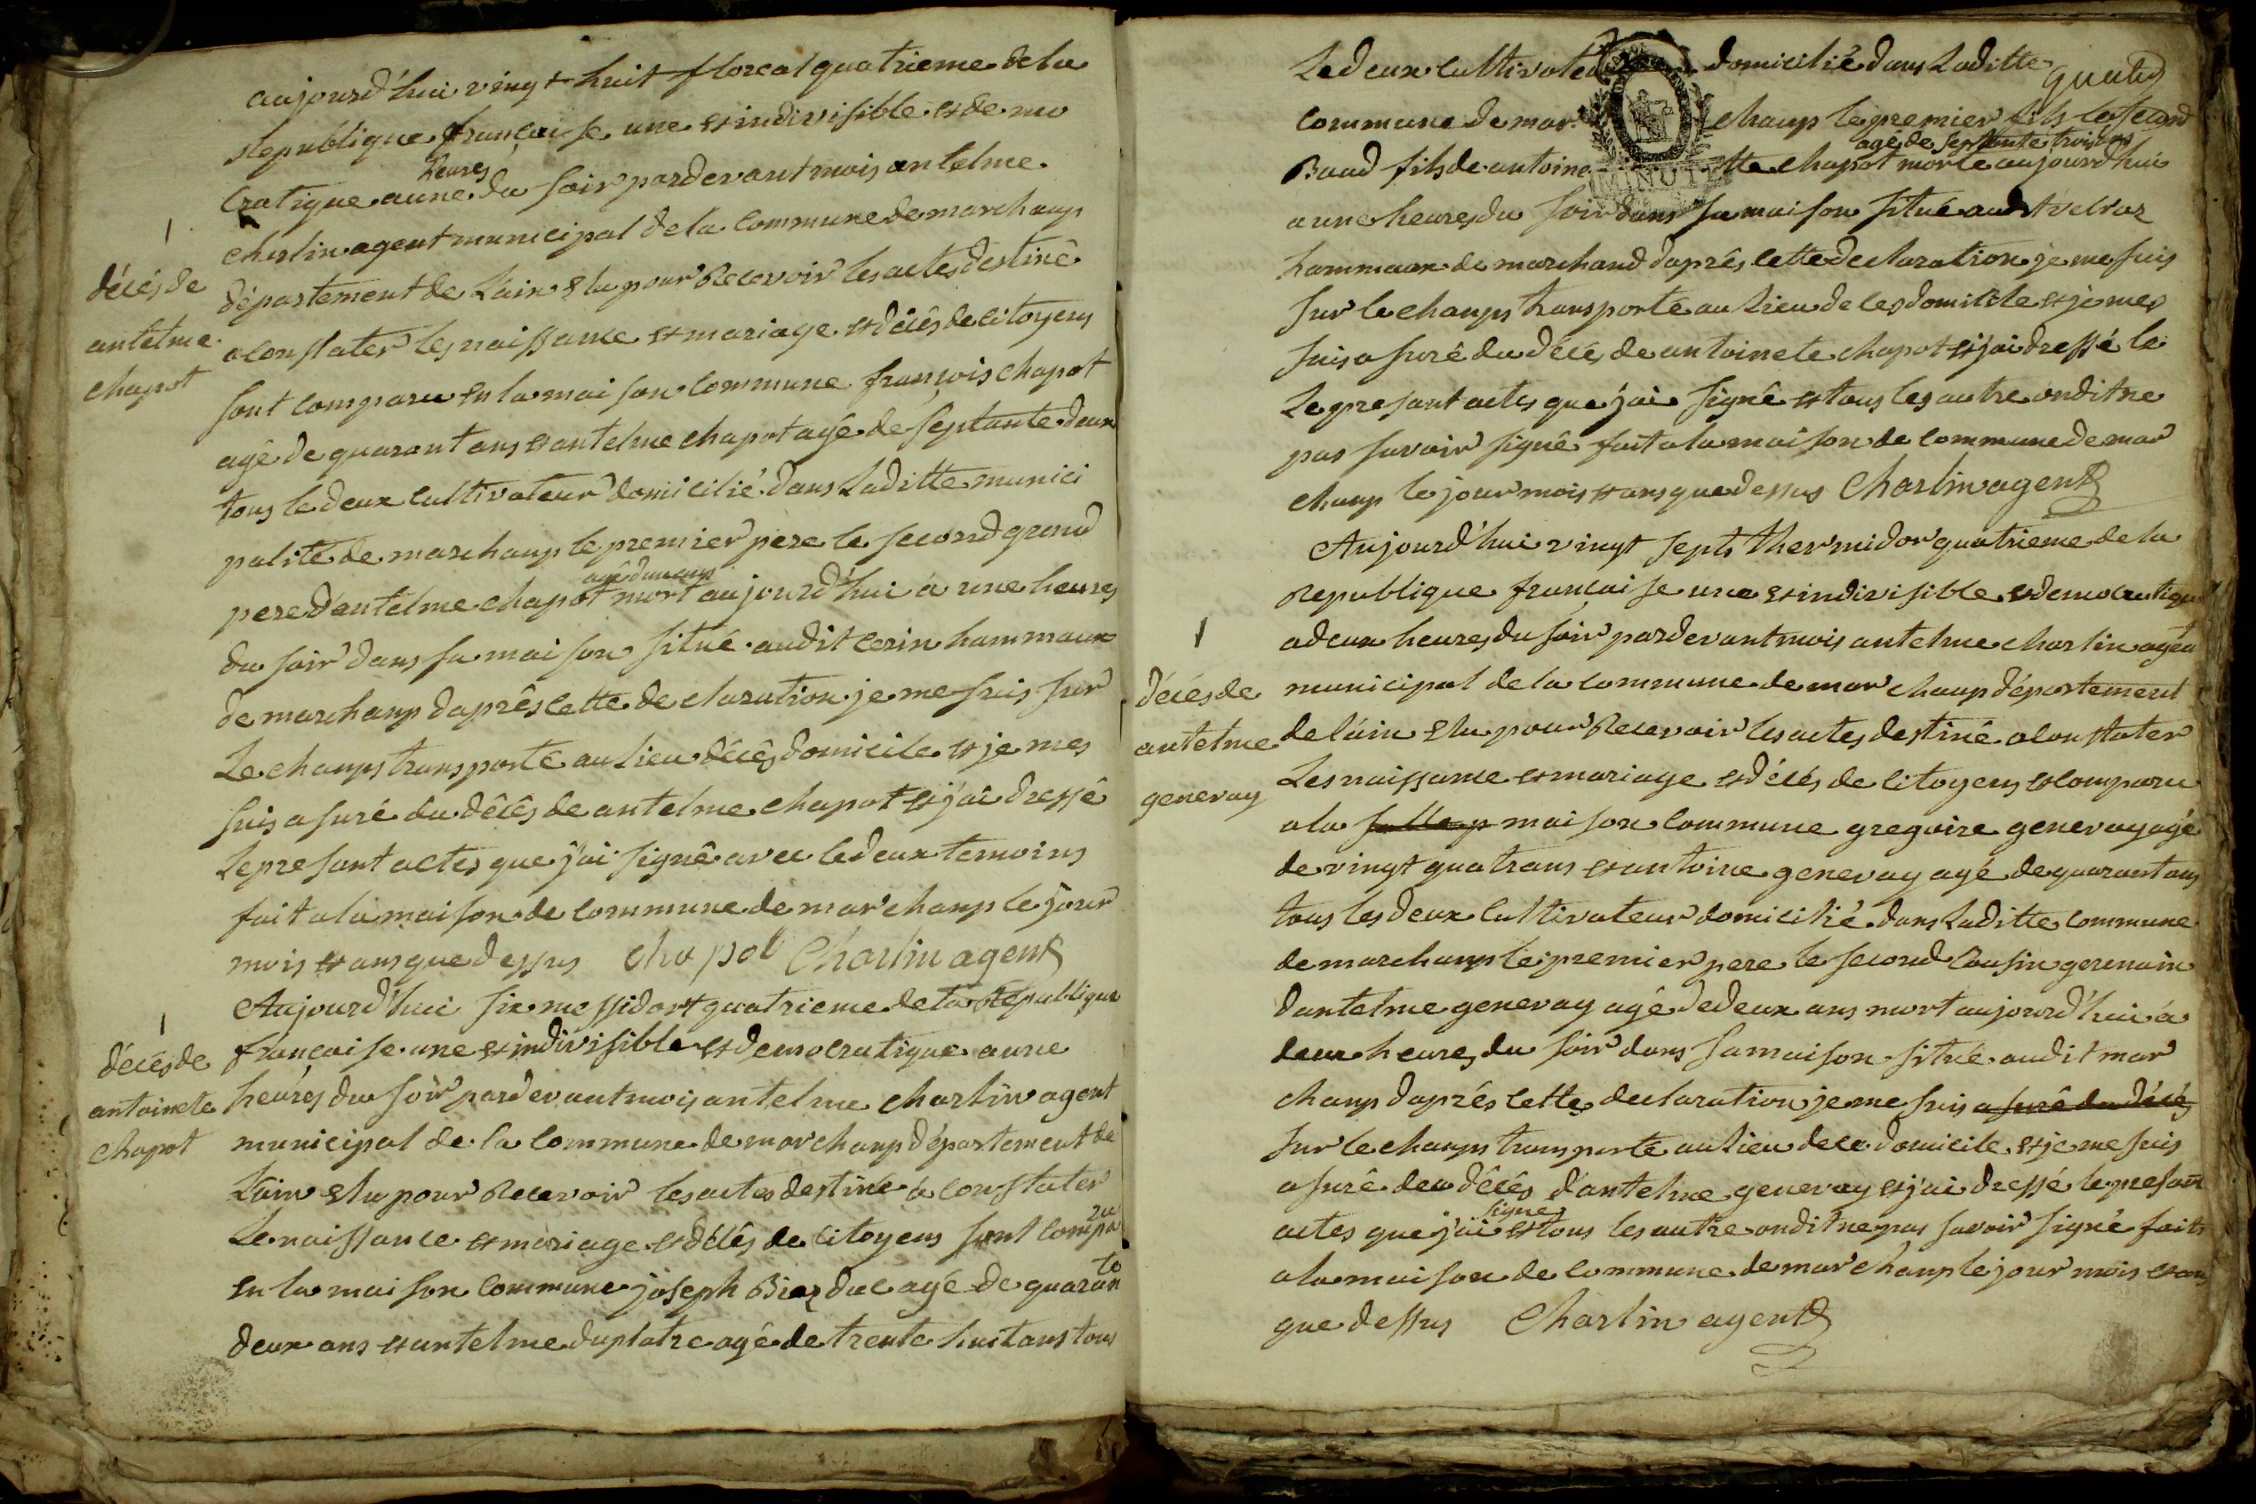 aujourd'hui vingt huit floreal quatrieme de la
republique francaise une et indivisible et demo
cratique a une heures du soir pardevant mois antelme
charlin agent municipal de la commune de marchamp
département de Lain elu pour Recevoir les actes destiné
décés de
antelme
chapot
a constater les naissance et mariage et décés de citoyens
sont comparu en la maison commune francois chapot
agé de quarant ans et antelme chapot agé de septante deux
tous le deux cultivateur domicilié dans Laditte munici
palité de marchamp le premier pere le second grand
pere d'antelme chapot agé dun ans mort aujourd'hui a une heures
du soir dans sa maison situé audit cerin hammaux
de marchamp daprês cette declaration je me suis sur
Le champs transporté au lieu décés domicile et je mes
suis asuré du dêcés de antelme chapot et j'ai dressé
Le presant actes que j'ai signê avec le deux temoins
fait a la maison de commune de marchamp le jour
mois et ans que dessus chapot Charlin agent
Aujourd'hui six messidort quatrieme de la Republique
francaise une et indivisible et democratique a une
décés de
antoinete
chapot
heures du soir pardevant mois antelme charlin agent
municipal de la commune de marchamp département de
Lain elu pour Recevoir les actes destiné a constater
Le naissance et mariage et décés de citoyens sont comparu
en la maison commune joseph duc agé de quarante
deux ans et antelme duplatre agé de trente huit ans tous
Le deux cultivateur domicilié dans Laditte
commune de mar champ le premier fils le second
Baud fils de antoine tte chapot agé de septante trois ans morte aujourd'hui
a une heures du soir dans sa maison situé audit
hammaux de marchand daprês cette declaration je me suis
sur le champs transporté au Lieu de ces domicile et je mes
suis asuré du décé de antoinete chapot et j'ai dressé le
Le presant actes que j'ai signê et tous les autre ondit ne
pas savoir signê fait a la maison de commune de mar
champ le jour mois et ans que dessus Charlin agent
Aujourd'hui vingt sept thermidor quatrieme de la
Republique francaise une et indivisible et democratique
a deux heures du soir pardevant mois antelme charlin agent
décés de
antelme
genevay
municipal de la commune de marchamp département
de lain elu pour Recevoir les actes destiné a constater
Les naissance et mariage et décés de citoyens et comparu
a la salle p maison commune gregoire genevay agé
de vingt quatrans et antoine genevay agé de quarant ans
tous les deux cultivateur domicilié dans Laditte commune
de marchamp le premier pere le second Cousin germain
dantelme genevay agé de deux ans mort aujourd'hui a
deux heures du soir dans sa maison situé audit mar
champ daprés cette declaration je me suis asuré du décés
sur le champs transporté au lieu de ce domicile et je me suis
asuré deu dêcés dantelme genevay et j'ai dressé le presant
actes que j'ai signe et tous les autre ondit ne pas savoir signé fait
a la maison de commune de marchamp le jour mois et ans
que dessus Charlin agent